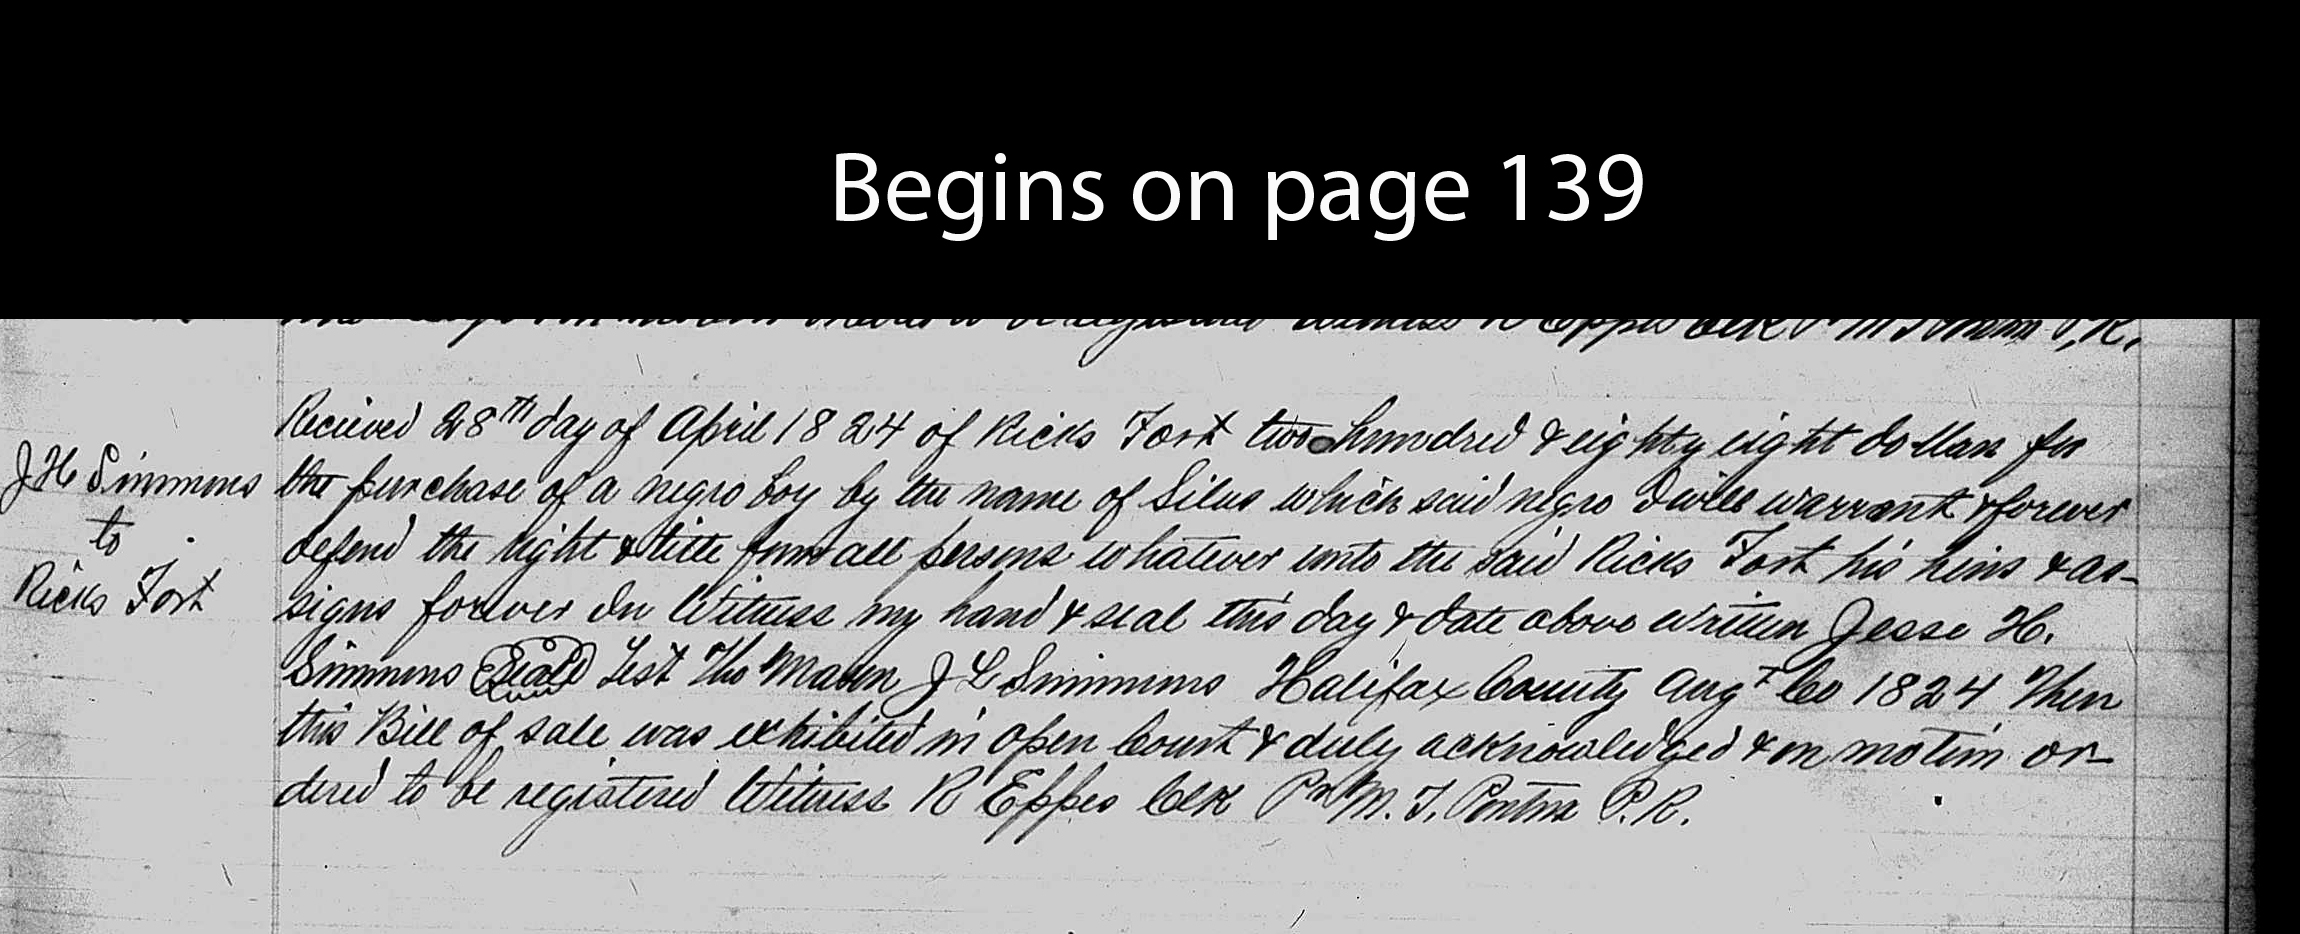 Begins on page 139
ordered to be registered Witness R Eppes Clk Pr M T Ponton P.R.
Recieved 28th day of April 1824 of Ricks Fort two hundred & eighty eight dollars for
J H Simmons
the purchase of a negro boy by the name of Silus which said negro I will warrant & forever
to
defend the right & title from all persons whatever unto the said Ricks Fort his heirs & as-
Ricks Fort
signs forever In Witness my hand & seal this day & date above written Jesse H.
Simmons Seal Test Tho Mason J L Simmons Halifax County Augt Co 1824 Then
this Bill of sale was exhibited in open Court & duly acknowledged & on motion or-
dered to be registered Witness R Eppes Clk Pr M. T. Ponton P.R.